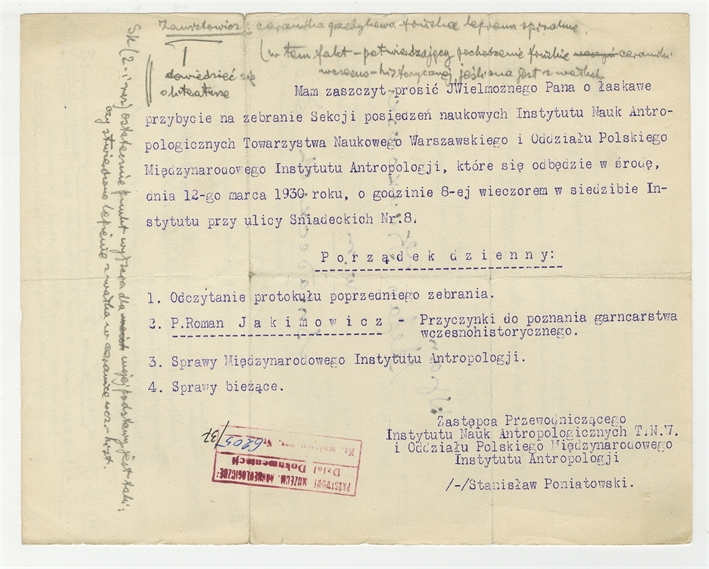 ceramika grzebykowa fińska lepiona spiralnie
(w tem fakt - potwierdzający pochodzenie fińskie ceramiki
wczesno-historycznej, jeśli ona jest z wałków
dowiedzieć się
o literaturę
Mam zaszczyt prosić JWielmożnego Pana o łaskawe
przybycie na zebranie Sekcji posiedzeń naukowych Instytutu Nauk Antro-
pologicznych Towarzystwa Naukowego Warszawskiego i Oddziału Polskiego
Międzynarodowego Instytutu Antropologji, które się odbędzie w środę,
dnia 12-go marca 1930 roku, o godzinie 8-ej wieczorem w siedzibie In-
stytutu przy ulicy Sniadeckich Nr.8.
Porządek dzienny:
1. Odczytanie protokułu poprzedniego zebrania.
2. P.Roman Jakimowicz - Przyczynki do poznania garncarstwa
wczesnohistorycznego.
3. Sprawy Międzynarodowego Instytutu Antropologji.
4. Sprawy bieżące.
Zastępca Przewodniczącego
Instytutu Nauk Antropologicznych T.N.W.
i Oddziału Polskiego Międzynarodowego
Instytutu Antropologji
/-/Stanisław Poniatowski.
ostatecznie punkt wyjścia dla mojej podstawy jest taki:
czy stwierdzono lepienie z wałka w ceramice wcz. hist.
PAŃSTWOWE MUZEUM ARCHEOLOGICZNE
Dział Dokumentacji
Nr. 6205/37